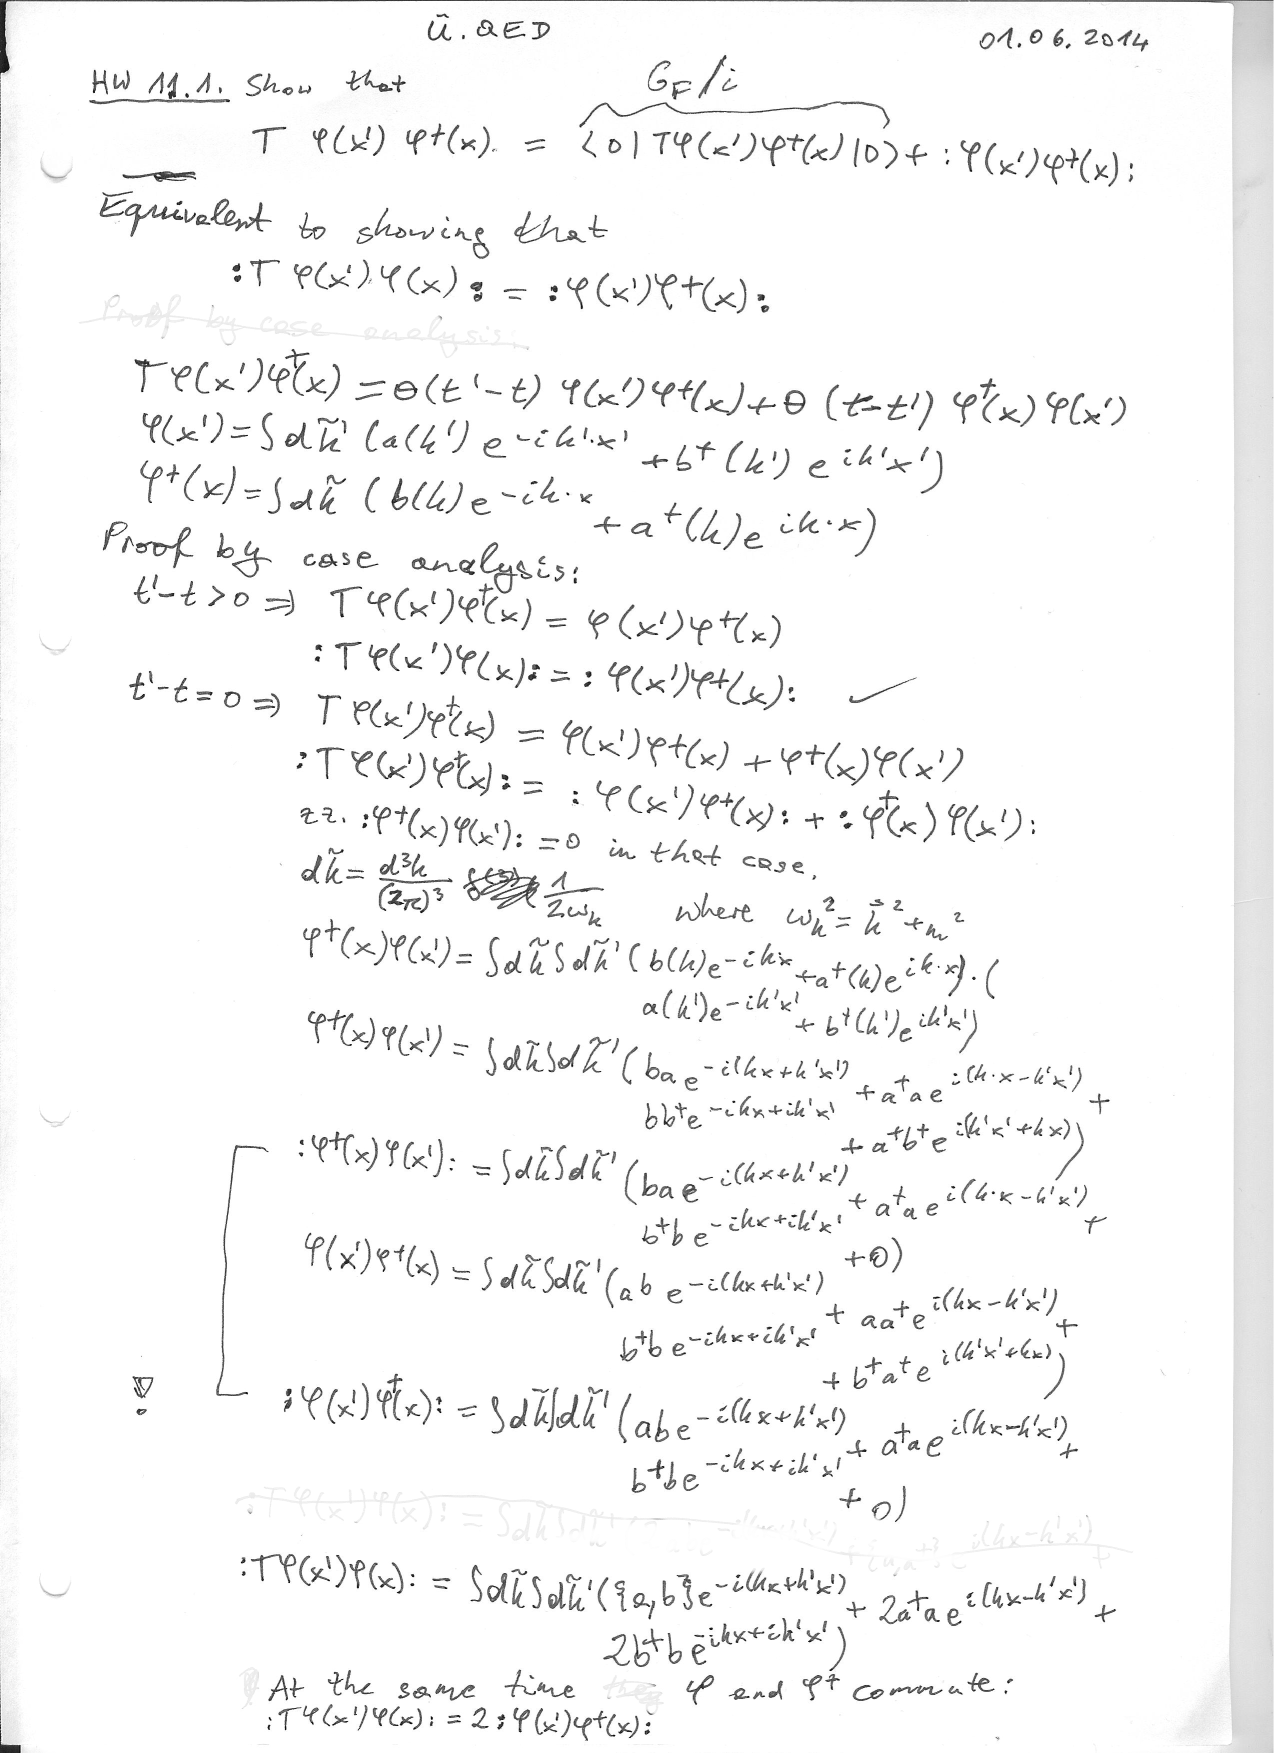 Ü. QED
01.06.2014
HW 11.1. Show that
G_F/i
T φ(x') φ†(x) = ⟨0|Tφ(x')φ†(x)|0⟩ + :φ(x')φ†(x):
Equivalent to showing that
:T φ(x')φ(x): = :φ(x')φ†(x):
Proof by case analysis:
Tφ(x')φ†(x) = θ(t'-t) φ(x')φ†(x) + θ(t-t') φ†(x)φ(x')
φ(x') = ∫dk̃' (a(k') e^{-ik'·x'} + b†(k') e^{ik'x'})
φ†(x) = ∫dk̃ (b(k)e^{-ik·x} + a†(k)e^{ik·x})
Proof by case analysis:
t'-t>0 ⇒ Tφ(x')φ†(x) = φ(x')φ†(x)
:Tφ(x')φ(x): = :φ(x')φ†(x): ✓
t'-t=0 ⇒ Tφ(x')φ†(x) = φ(x')φ†(x) + φ†(x)φ(x')
:Tφ(x')φ†(x): = :φ(x')φ†(x): + :φ†(x)φ(x'):
zz. :φ†(x)φ(x'): =0 in that case.
dk̃ = d³k/(2π)³ 1/2ω_k where ω_k² = k⃗² + m²
φ†(x)φ(x') = ∫dk̃∫dk̃' (b(k)e^{-ikx} + a†(k)e^{ik·x})·(
a(k')e^{-ik'x'} + b†(k')e^{ik'x'})
φ†(x)φ(x') = ∫dk̃∫dk̃' (ba e^{-i(kx+k'x')} + a†a e^{i(k·x-k'x')} +
bb†e^{-ikx+ik'x'} + a†b†e^{i(k'x'+kx)})
:φ†(x)φ(x'): = ∫dk̃∫dk̃' (ba e^{-i(kx+k'x')} + a†a e^{i(k·x-k'x')} +
b†b e^{-ikx+ik'x'} +0)
φ(x')φ†(x) = ∫dk̃∫dk̃' (ab e^{-i(kx+k'x')} + aa†e^{i(kx-k'x')} +
b†b e^{-ikx+ik'x'} + b†a†e^{i(k'x'+kx)})
! :φ(x')φ†(x): = ∫dk̃∫dk̃' (ab e^{-i(kx+k'x')} + a†a e^{i(kx-k'x')} +
b†b e^{-ikx+ik'x'} + 0)
:Tφ(x')φ(x): = ∫dk̃∫dk̃' ({a,b}e^{-i(kx+k'x')} + 2a†a e^{i(kx-k'x')} +
2b†b e^{-ikx+ik'x'})
At the same time φ and φ† commute:
:Tφ(x')φ(x): = 2:φ(x')φ†(x):